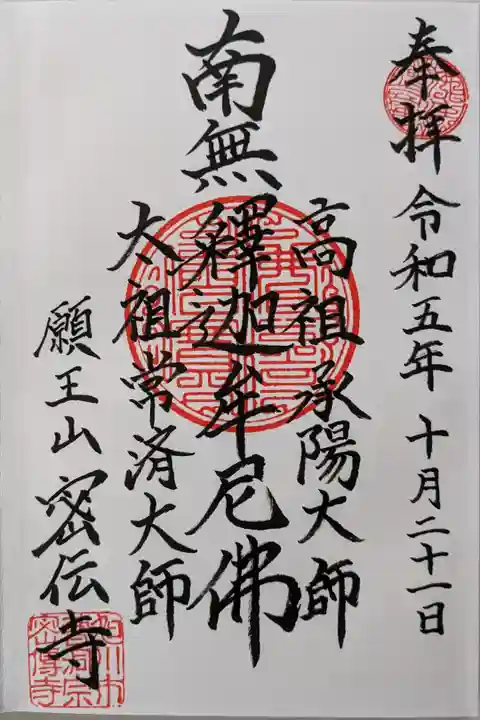 奉拝 令和五年 十月二十一日
高祖承陽大師
南無釋迦牟尼佛
太祖常済大師
願王山 密伝寺
曹洞宗
密傳寺